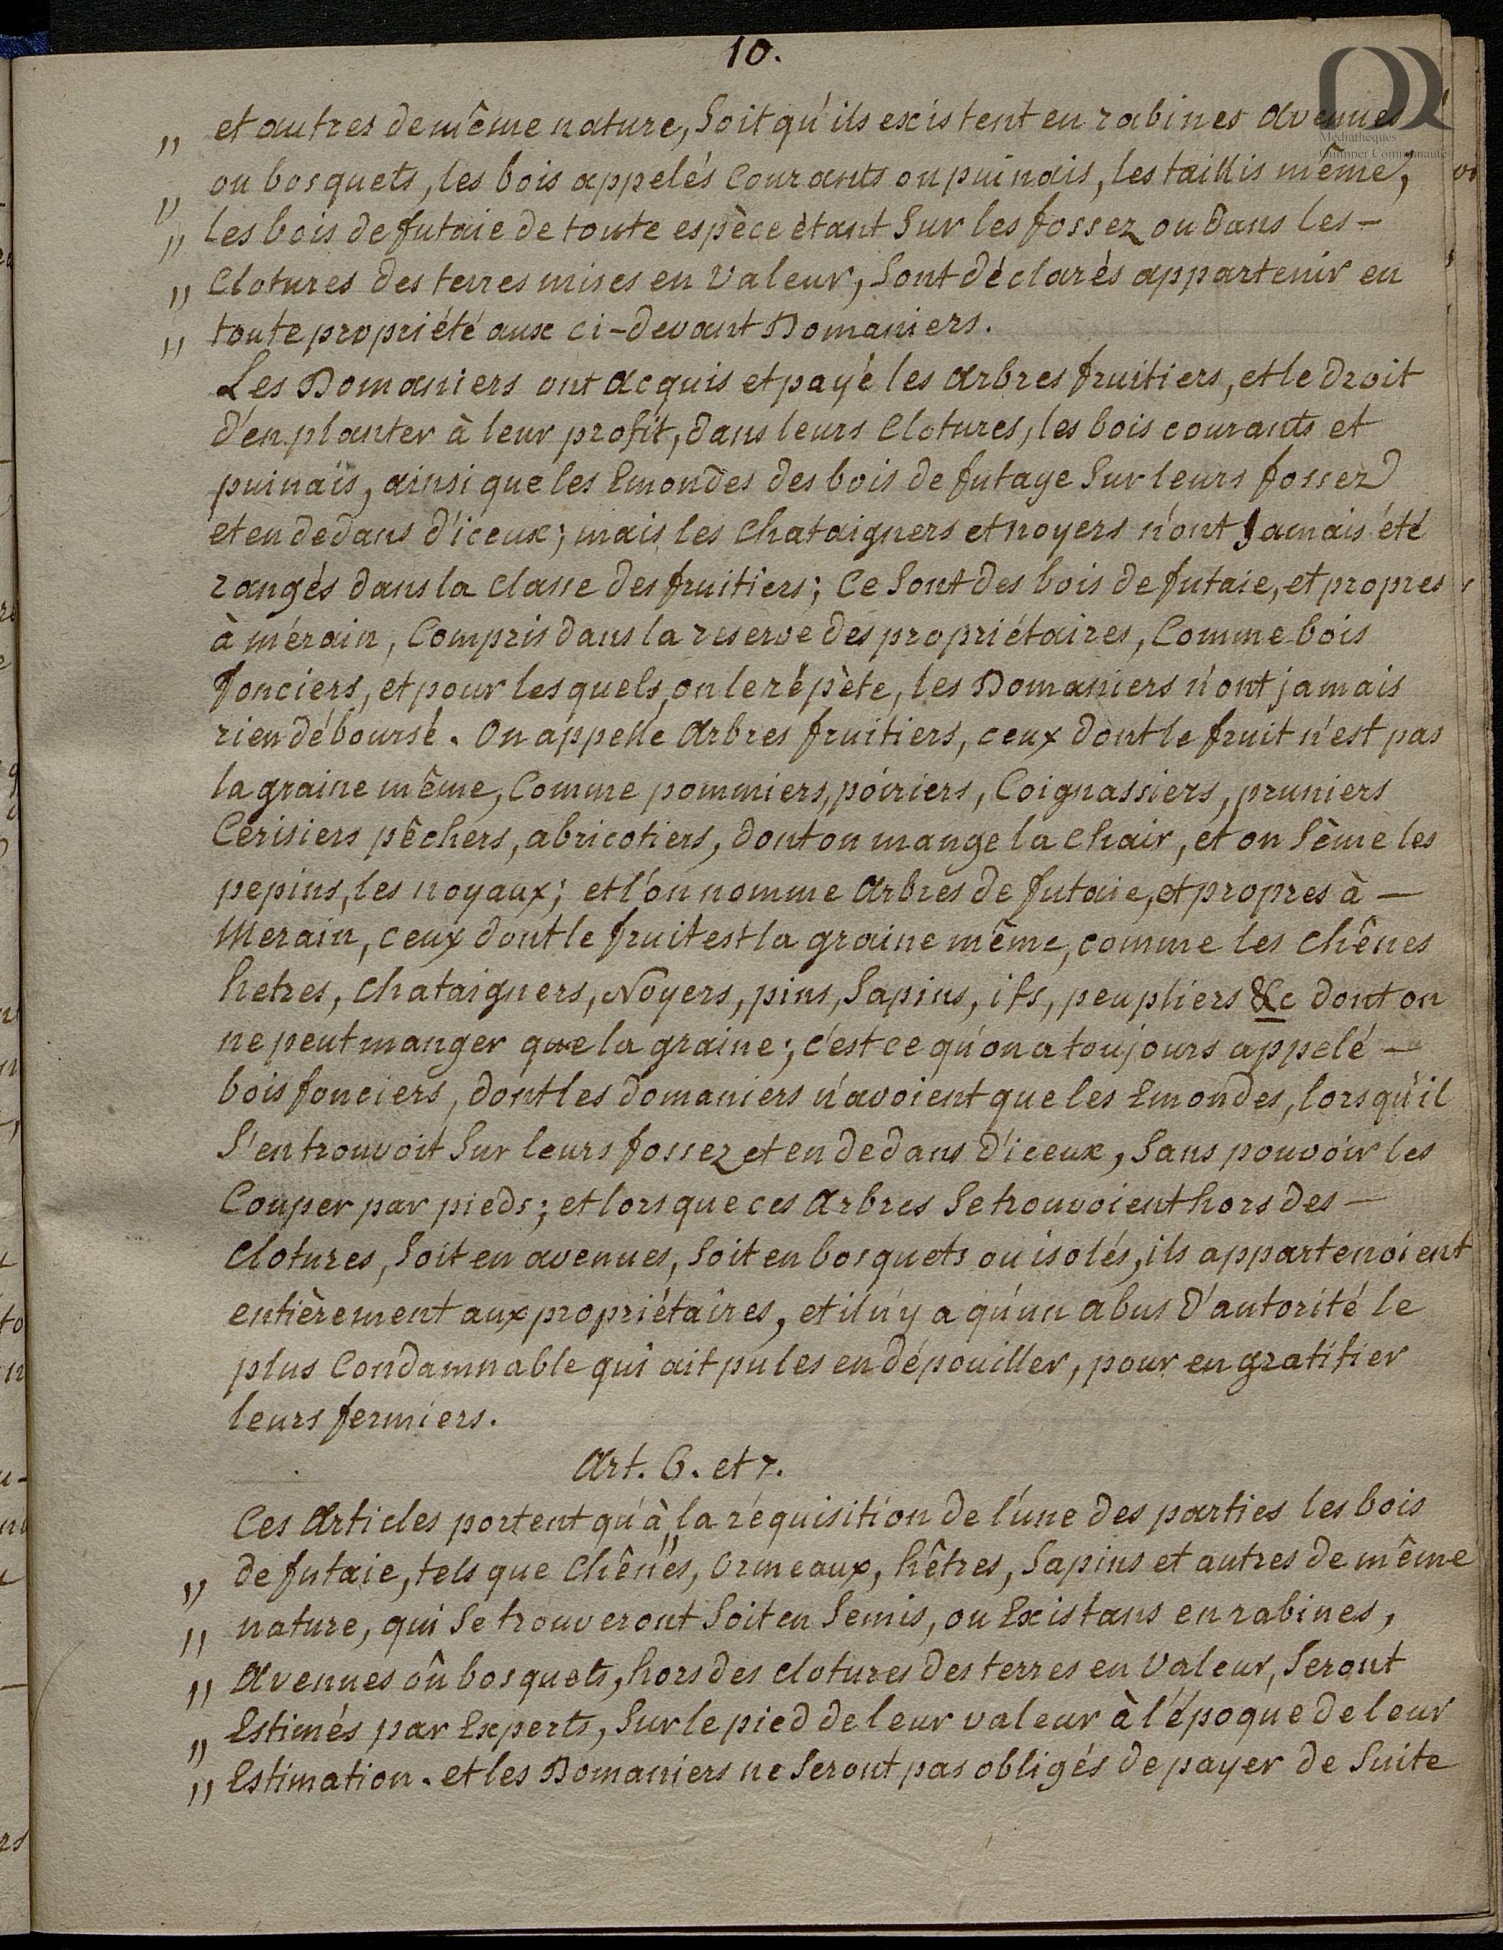 10.
„ et autres de même nature, Soit qu'ils existent en rabines avenues
„ ou bosquets, les bois appelés Courants ou puinais, les taillis même,
„ les bois de futaie de toute espèce ètant Sur les fossez ou dans les —
„ Clotures des terres mises en Valeur, Sont déclarés appartenir en
„ toute propriété aux ci-devant Domaniers.
Les Domaniers ont acquis et payé les arbres fruitiers, et le droit
d'en planter à leur profit, dans leurs Clotures, les bois courants et
puinais, ainsi que les Emondes des bois de futaye Sur leurs fossez
et en dedans d'iceux; mais les chataigners et noyers n'ont Jamais été
rangés dans la classe des fruitiers; Ce Sont des bois de futaie, et propres
à mérain, Compris dans la reserve des propriétaires, Comme bois
fonciers, et pour lesquels, on le répète, les Domaniers n'ont jamais
rien déboursé. On appelle arbres fruitiers, ceux dont le fruit n'est pas
la graine même, Comme pommiers, poiriers, Coignassiers, pruniers
Cerisiers pêchers, abricotiers, dont on mange la chair, et on Sème les
pepins, les noyaux; et l'on nomme arbres de futaie, et propres à —
Merain, ceux dont le fruit est la graine même, comme les chênes
hetres, chataigners, Noyers, pins, Sapins, ifs, peupliers &c dont on
ne peut manger que la graine; c'est ce qu'on a toujours appelé —
bois fonciers, dont les domaniers n'avoient que les Emondes, lorsqu'il
S'en trouvoit Sur leurs fossez et en dedans d'iceux, Sans pouvoir les
Couper par pieds; et lorsque ces arbres Se trouvoient hors des —
clotures, Soit en avenues, Soit en bosquets ou isolés, ils appartenoient
entièrement aux propriétaires, et il n'y a qu'un abus d'autorité le
plus Condamnable qui ait pu les en dépouiller, pour en gratifier
leurs fermiers.
Art. 6. et 7.
Ces Articles portent qu'à „ la réquisition de l'une des parties les bois
„ de futaie, tels que Chênes, Ormeaux, hêtres, Sapins et autres de même
„ nature, qui Se trouveront Soit en Semis, ou Existans en rabines,
„ Avenues où bosquets, hors des clotures des terres en Valeur, Seront
„ Estimés par Experts, Sur le pied de leur valeur à l'époque de leur
„ Estimation. et les Domaniers ne Seront pas obligés de payer de Suite
Médiathèques
Quimper Communauté